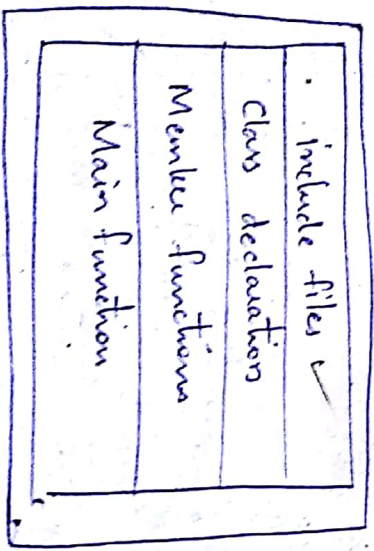 include files
Class declaration
Member functions
Main function